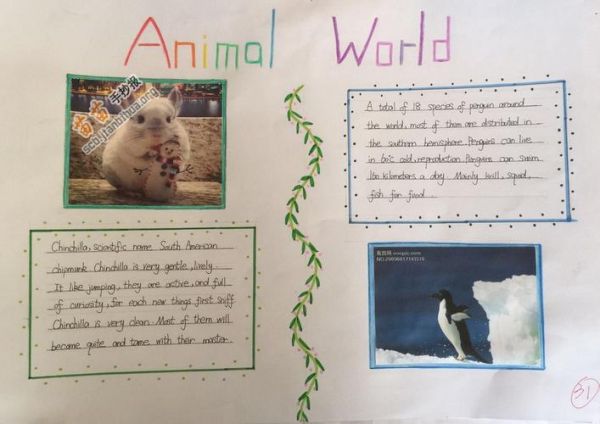 Animal World
苗苗手抄报
scb.jianbihua.org
Chinchilla, scientific name South American
chipmunk Chinchilla is very gentle, lively.
It like jumping, they are active, and full
of curiosity, for each new things first sniff
Chinchilla is very clean. Most of them will
become quite and tame with their master.
A total of 18 species of penguin around
the world, most of them are distributed in
the southern hemisphere. Penguins can live
in 60°c cold, reproduction. Penguins can swim
160 kilometers a day. Mainly krill, squid,
fish for food.
31